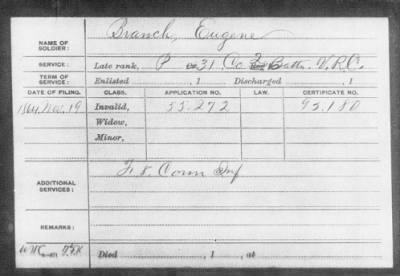 NAME OF SOLDIER: Branch, Eugene
SERVICE: Late rank, P 31 Co 2 Battn. V.R.C.
TERM OF SERVICE: Enlisted , 1 Discharged , 1
DATE OF FILING. CLASS. APPLICATION NO. LAW. CERTIFICATE NO.
1864, Nov. 19 Invalid, 55.272 95.180
Widow,
Minor,
ADDITIONAL SERVICES: F 8. Conn Inf
REMARKS:
Died , 1 , at